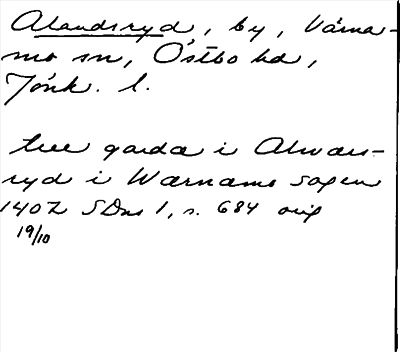 Alandsryd, by, Värna-
mo sn, Östbo hd,
Jönk. l.
twe garda i Alwars-
ryd i Wærnamo sogen
1407 SDns 1, s. 684 orig
19/10